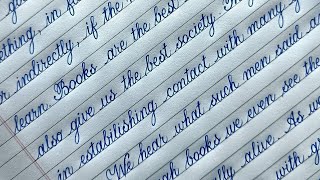 good
something, in fa
or indirectly, if the m
learn. Books are the best society. In
also give us the best
in estabilishing contact with many s
We hear what such men said an
books we even see the
ally alive. As w
with g